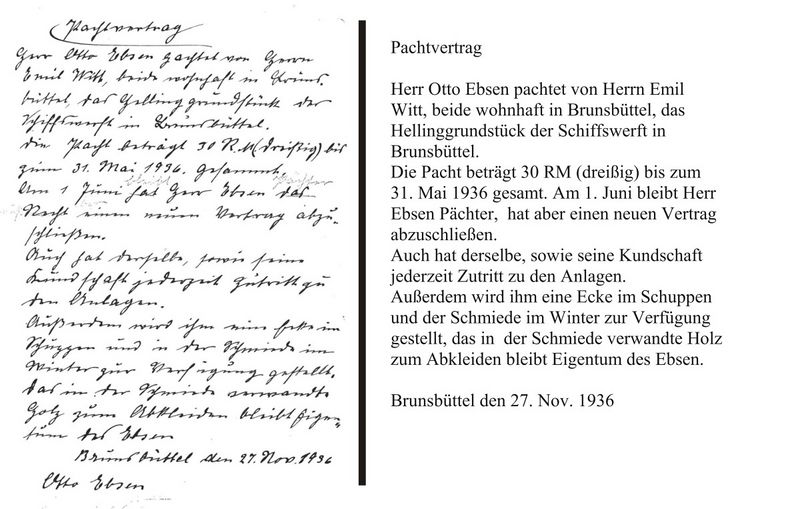 Pachtvertrag
Herr Otto Ebsen pachtet von Herrn
Emil Witt, beide wohnhaft in Bruns-
büttel, das Hellinggrundstück der
Schiffswerft in Brunsbüttel.
Die Pacht beträgt 30 R.M (dreißig) bis
zum 31. Mai 1936. gesammt.
Am 1 Juni hat Herr Ebsen das
Recht einen neuen Vertrag abzu-
schließen.
Auch hat derselbe, sowie seine
Kundschaft jederzeit Zutritt zu
den Anlagen.
Außerdem wird ihm eine Ecke im
Schuppen und in der Schmiede im
Winter zur Verfügung gestellt.
Das in der Schmiede verwandte
Holz zum Abkleiden bleibt Eigen-
tum des Ebsen
Brunsbüttel den 27. Nov. 1936
Otto Ebsen
Pachtvertrag
Herr Otto Ebsen pachtet von Herrn Emil
Witt, beide wohnhaft in Brunsbüttel, das
Hellinggrundstück der Schiffswerft in
Brunsbüttel.
Die Pacht beträgt 30 RM (dreißig) bis zum
31. Mai 1936 gesamt. Am 1. Juni bleibt Herr
Ebsen Pächter, hat aber einen neuen Vertrag
abzuschließen.
Auch hat derselbe, sowie seine Kundschaft
jederzeit Zutritt zu den Anlagen.
Außerdem wird ihm eine Ecke im Schuppen
und der Schmiede im Winter zur Verfügung
gestellt, das in der Schmiede verwandte Holz
zum Abkleiden bleibt Eigentum des Ebsen.
Brunsbüttel den 27. Nov. 1936